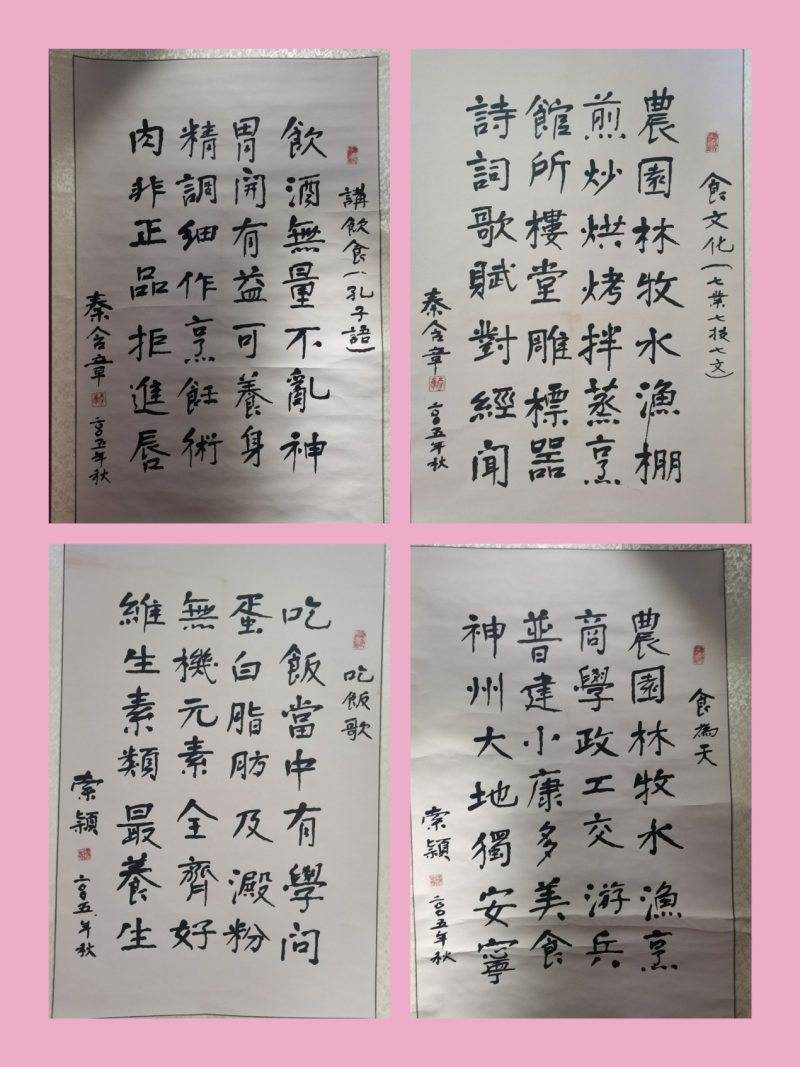 講飲食(孔子語)
飲酒無量不亂神
胃開有益可養身
精調細作烹飪術
肉非正品拒進唇
秦含章
二〇〇五年秋
食文化(七業七技七文)
農園林牧水漁棚
煎炒烘烤拌蒸烹
館所樓堂雕標器
詩詞歌賦對經聞
秦含章
二〇〇五年秋
吃飯歌
吃飯當中有學問
蛋白脂肪及澱粉
無機元素全齊好
維生素類最養生
索穎
二〇〇五年秋
食為天
農園林牧水漁烹
商學政工交游兵
普建小康多美食
神州大地獨安寧
索穎
二〇〇五年秋